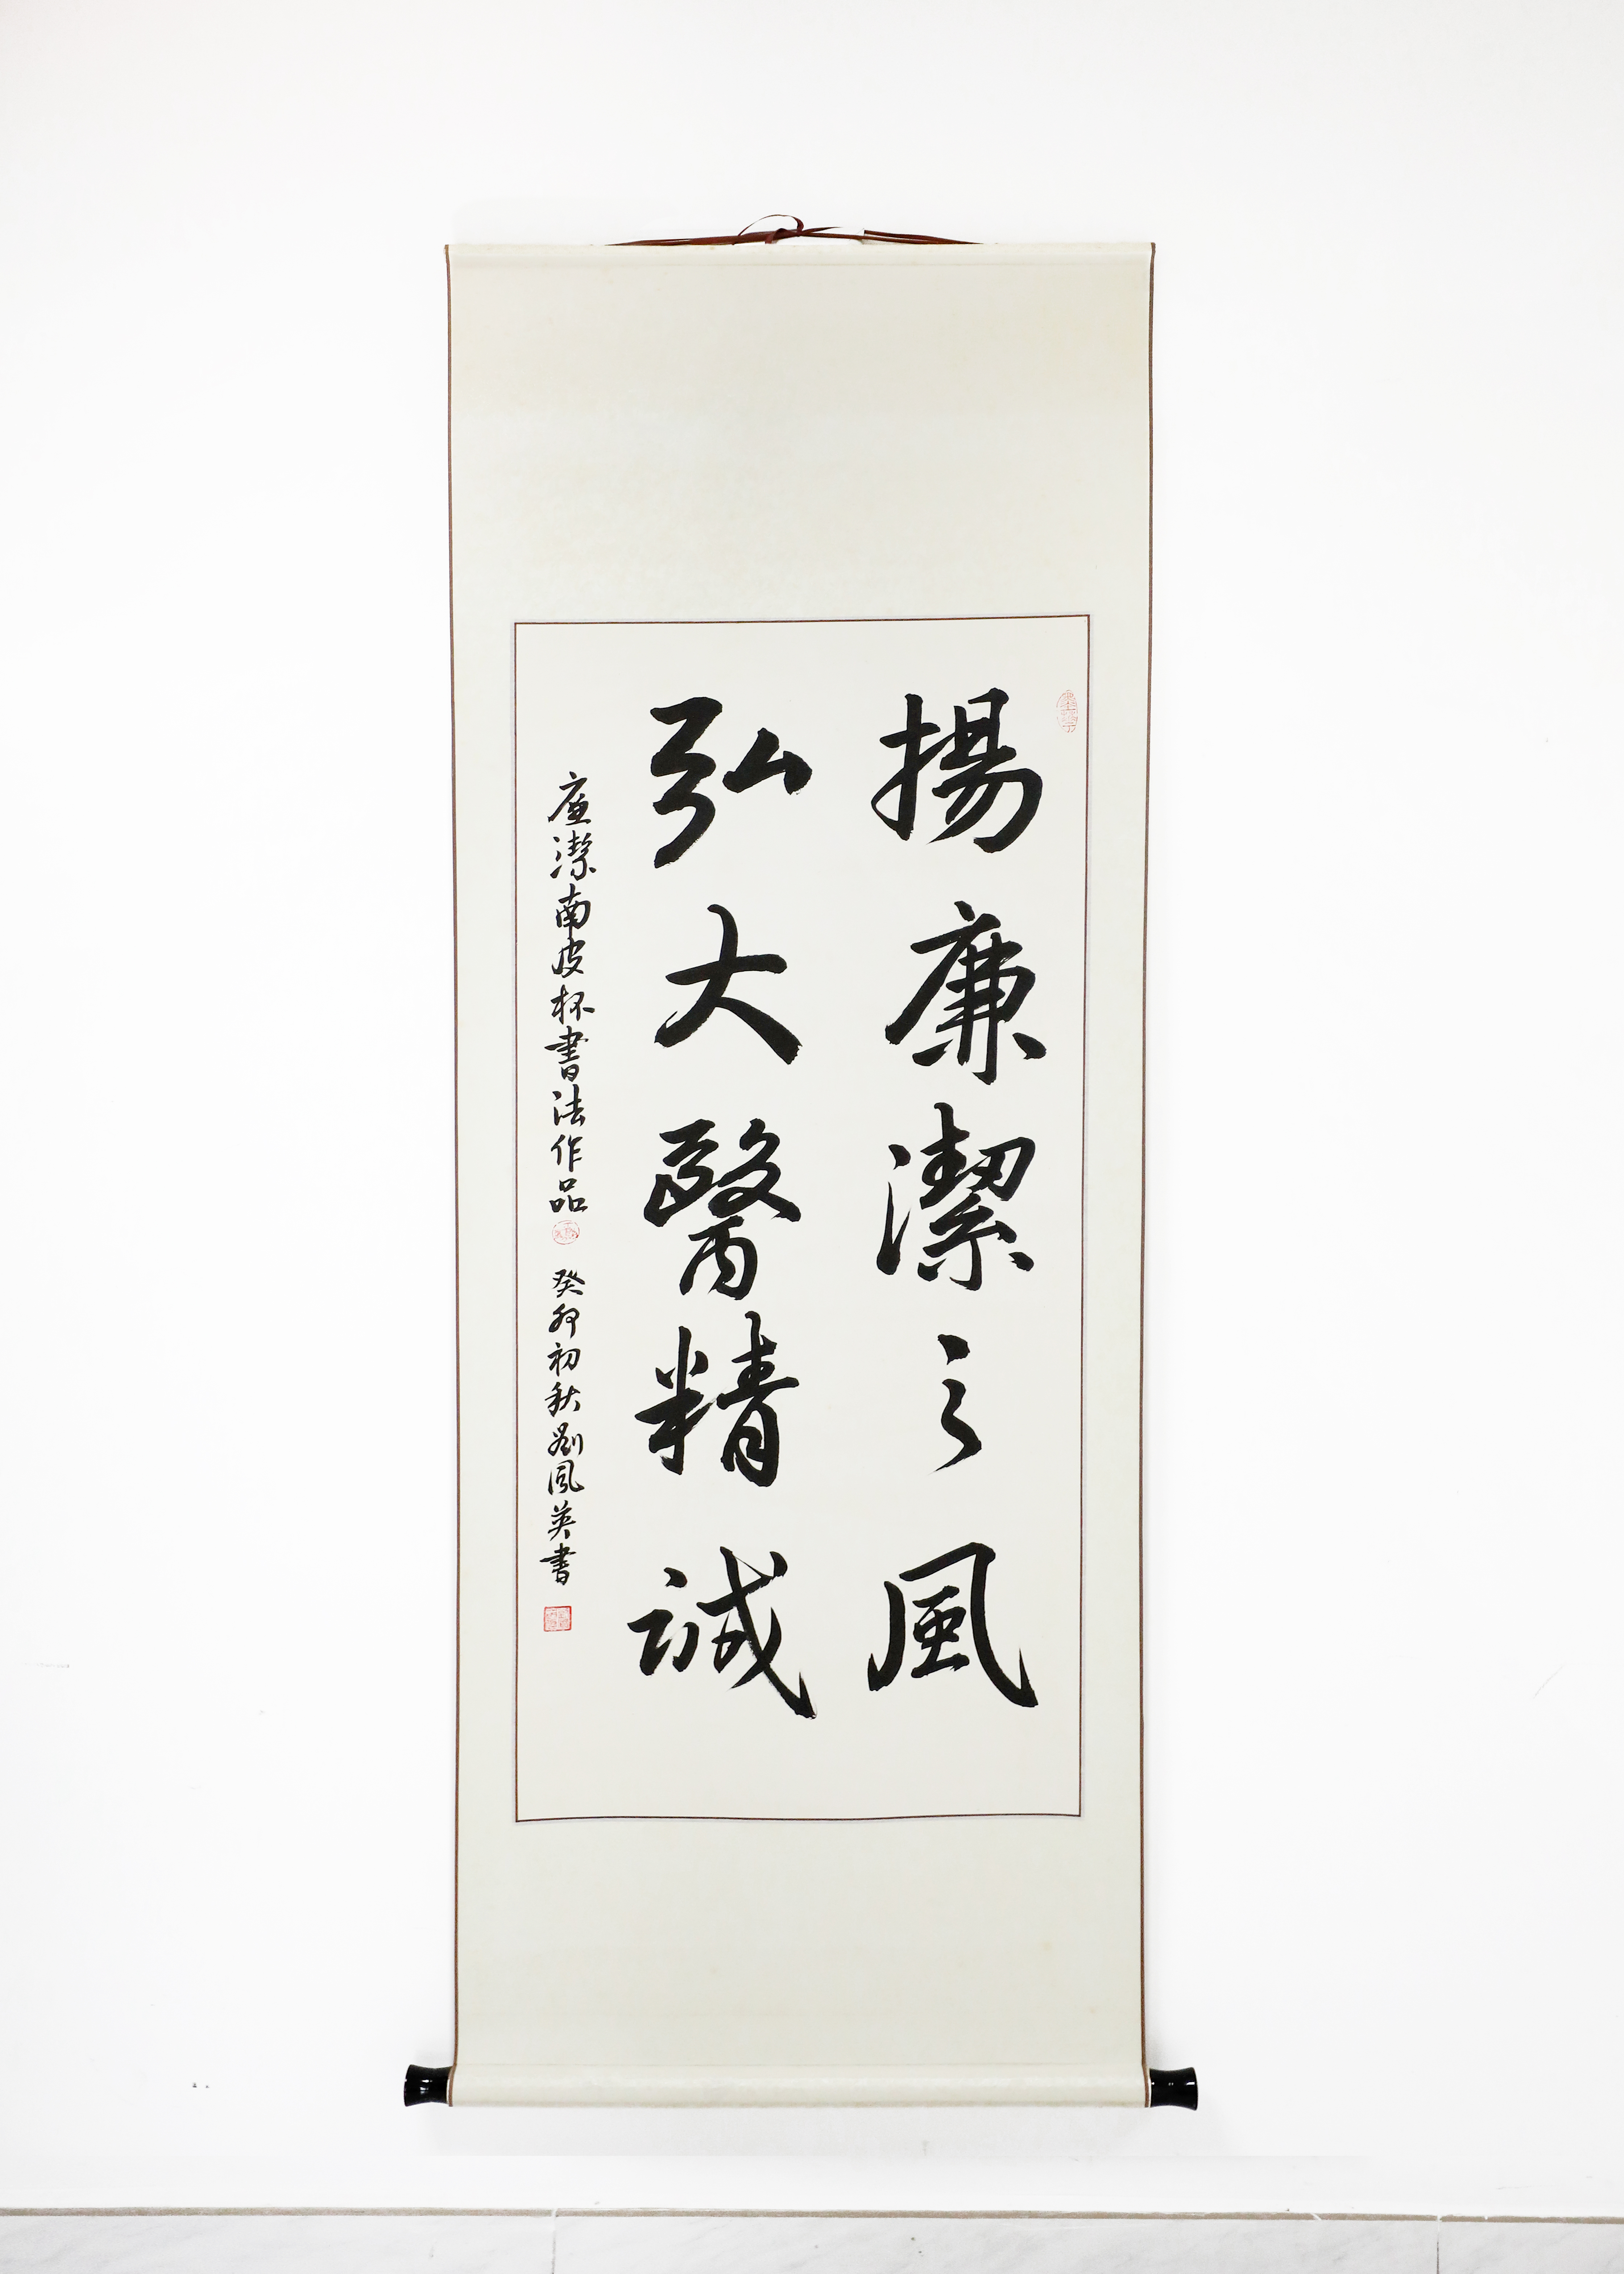 揚廉潔之風
弘大醫精誠
廉潔南皮杯書法作品
癸卯初秋劉風英書